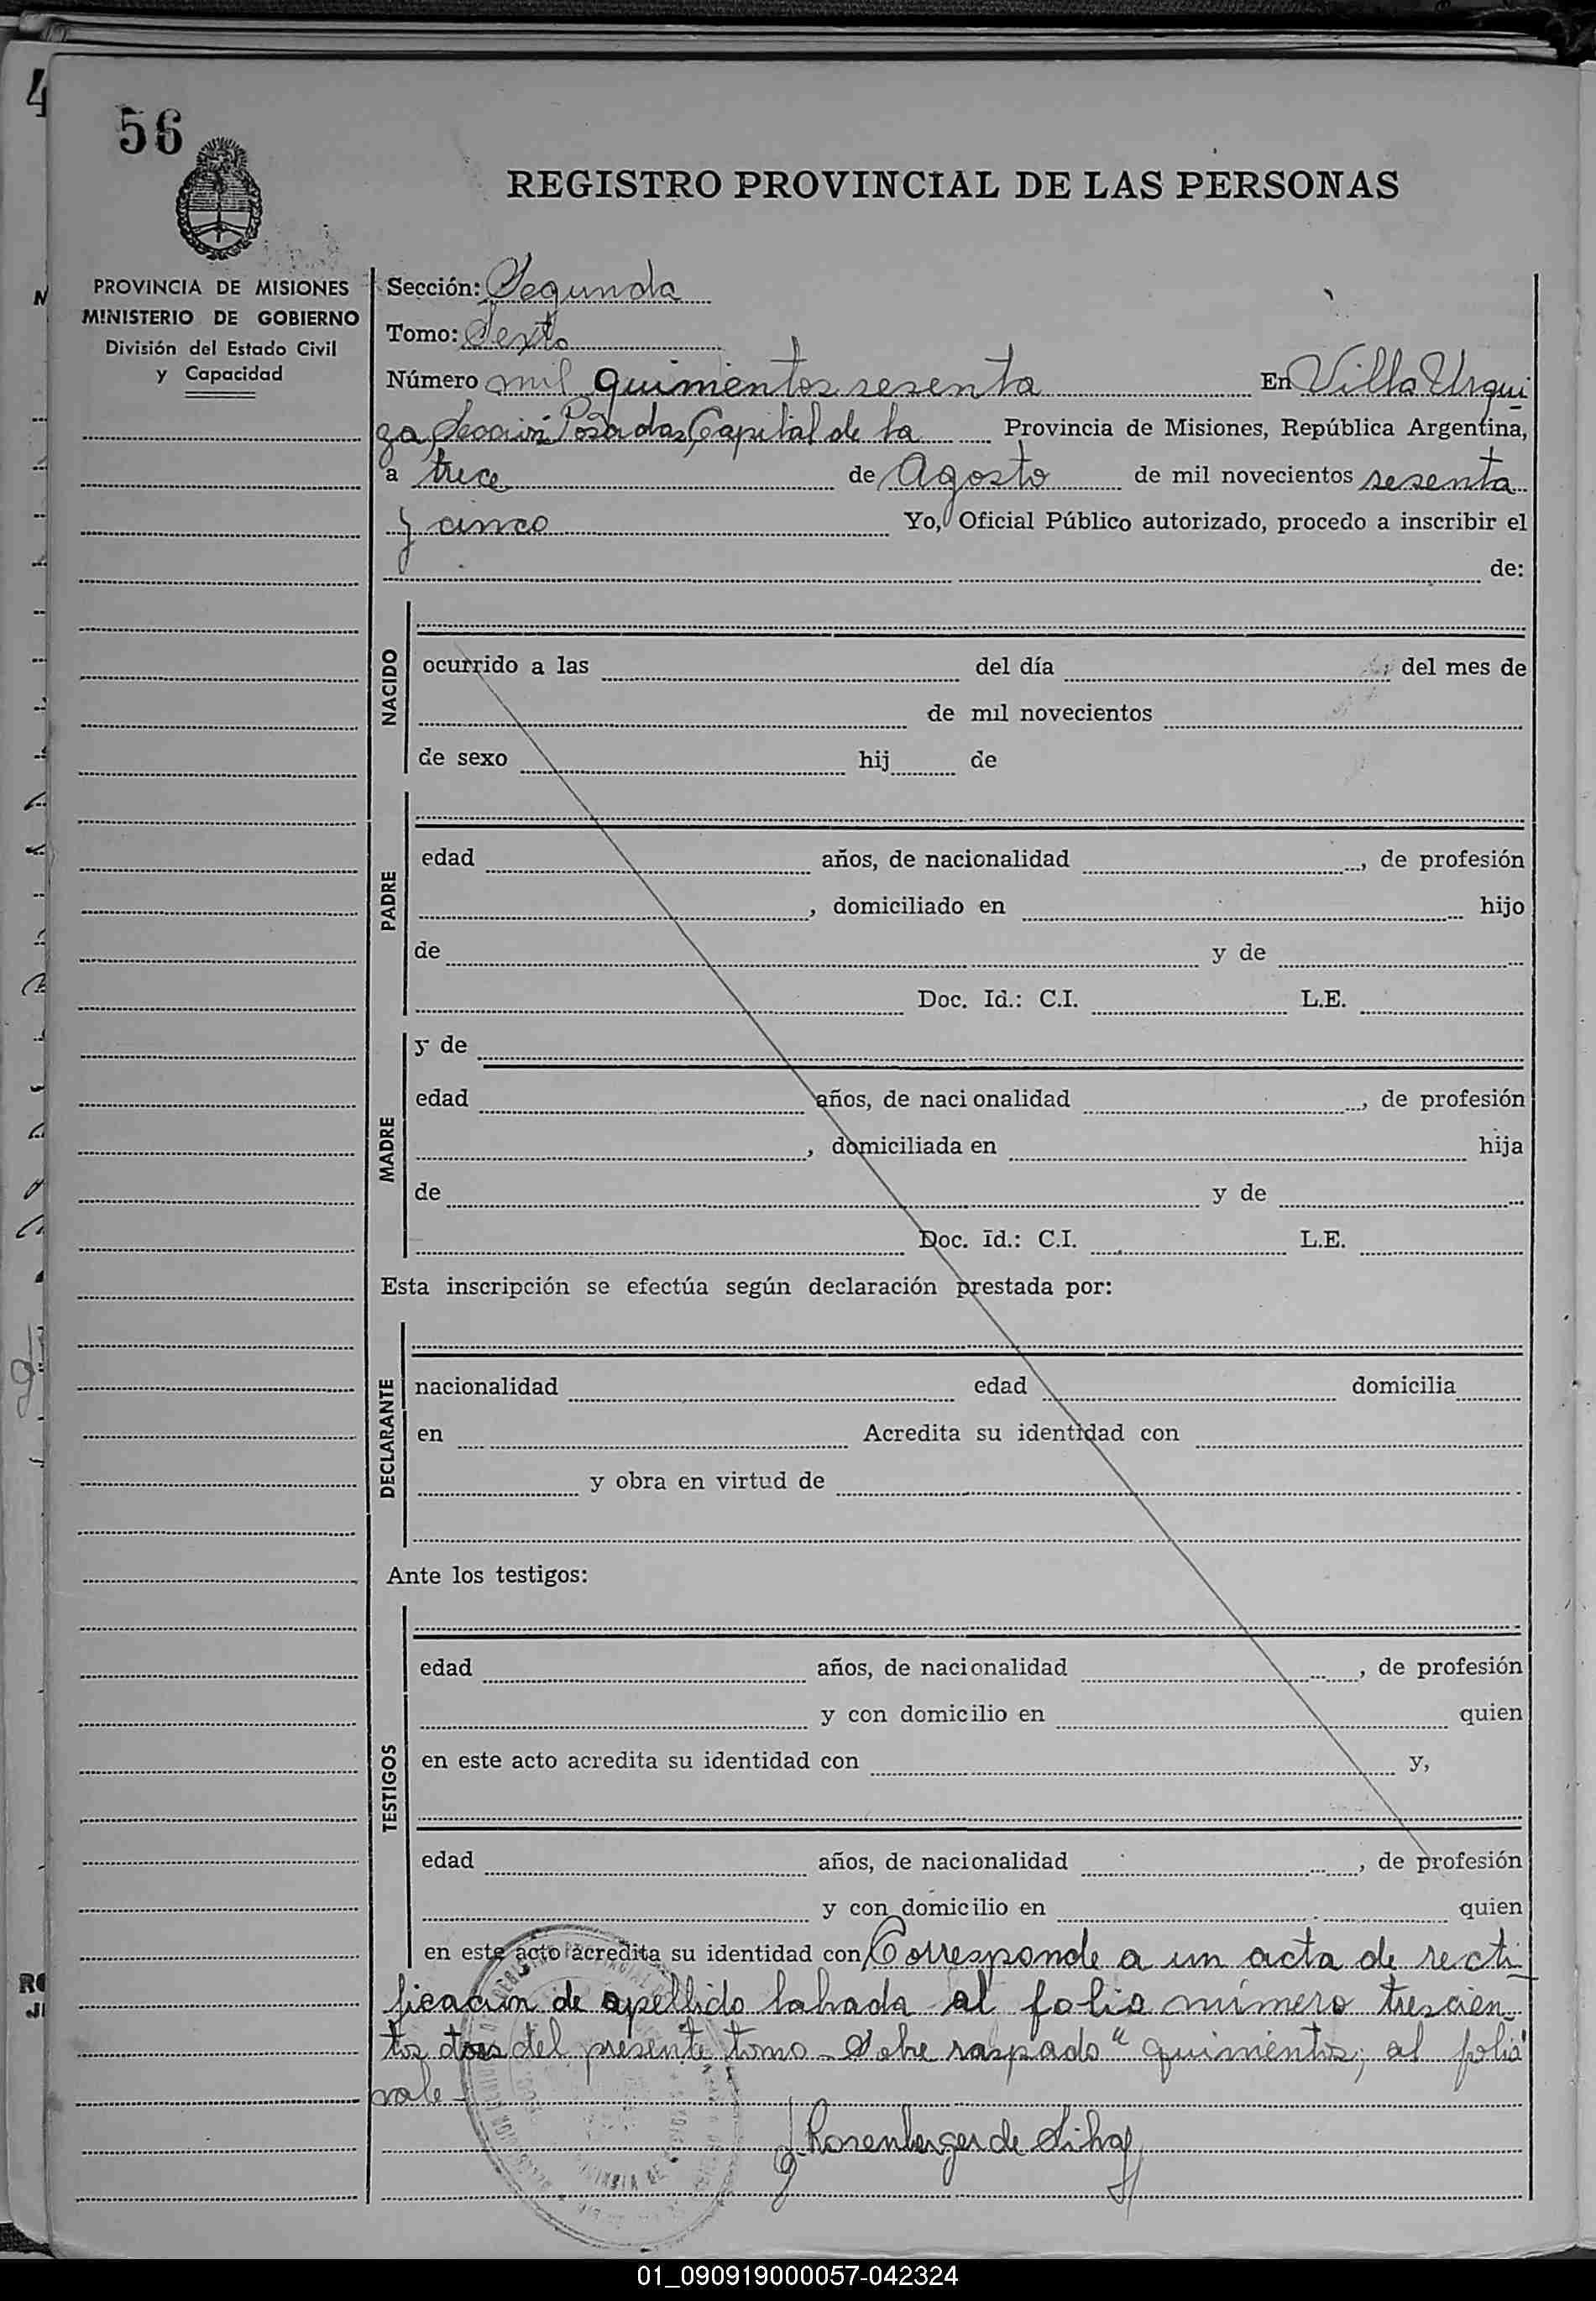 56
REGISTRO PROVINCIAL DE LAS PERSONAS
PROVINCIA DE MISIONES
MINISTERIO DE GOBIERNO
División del Estado Civil
y Capacidad
Sección: Segunda
Tomo: Sexto
Número mil quinientos sesenta En Villa Urqui
za, Sección Posadas, Capital de la Provincia de Misiones, República Argentina,
a trece de Agosto de mil novecientos sesenta
y cinco Yo, Oficial Público autorizado, procedo a inscribir el
de:
NACIDO
ocurrido a las del día del mes de
de mil novecientos
de sexo hij de
PADRE
edad años, de nacionalidad , de profesión
, domiciliado en hijo
de y de
Doc. Id.: C.I. L.E.
MADRE
y de
edad años, de nacionalidad , de profesión
, domiciliada en hija
de y de
Doc. Id.: C.I. L.E.
Esta inscripción se efectúa según declaración prestada por:
DECLARANTE
nacionalidad edad domicilia
en Acredita su identidad con
y obra en virtud de
Ante los testigos:
TESTIGOS
edad años, de nacionalidad , de profesión
y con domicilio en quien
en este acto acredita su identidad con y,
edad años, de nacionalidad , de profesión
y con domicilio en quien
en este acto acredita su identidad con Corresponde a un acta de recti
ficación de apellido labrada al folio número trescien
tos dos del presente tomo - Sobre raspado "quinientos, al folio"
vale -
Rosenberger de
01_090919000057-042324